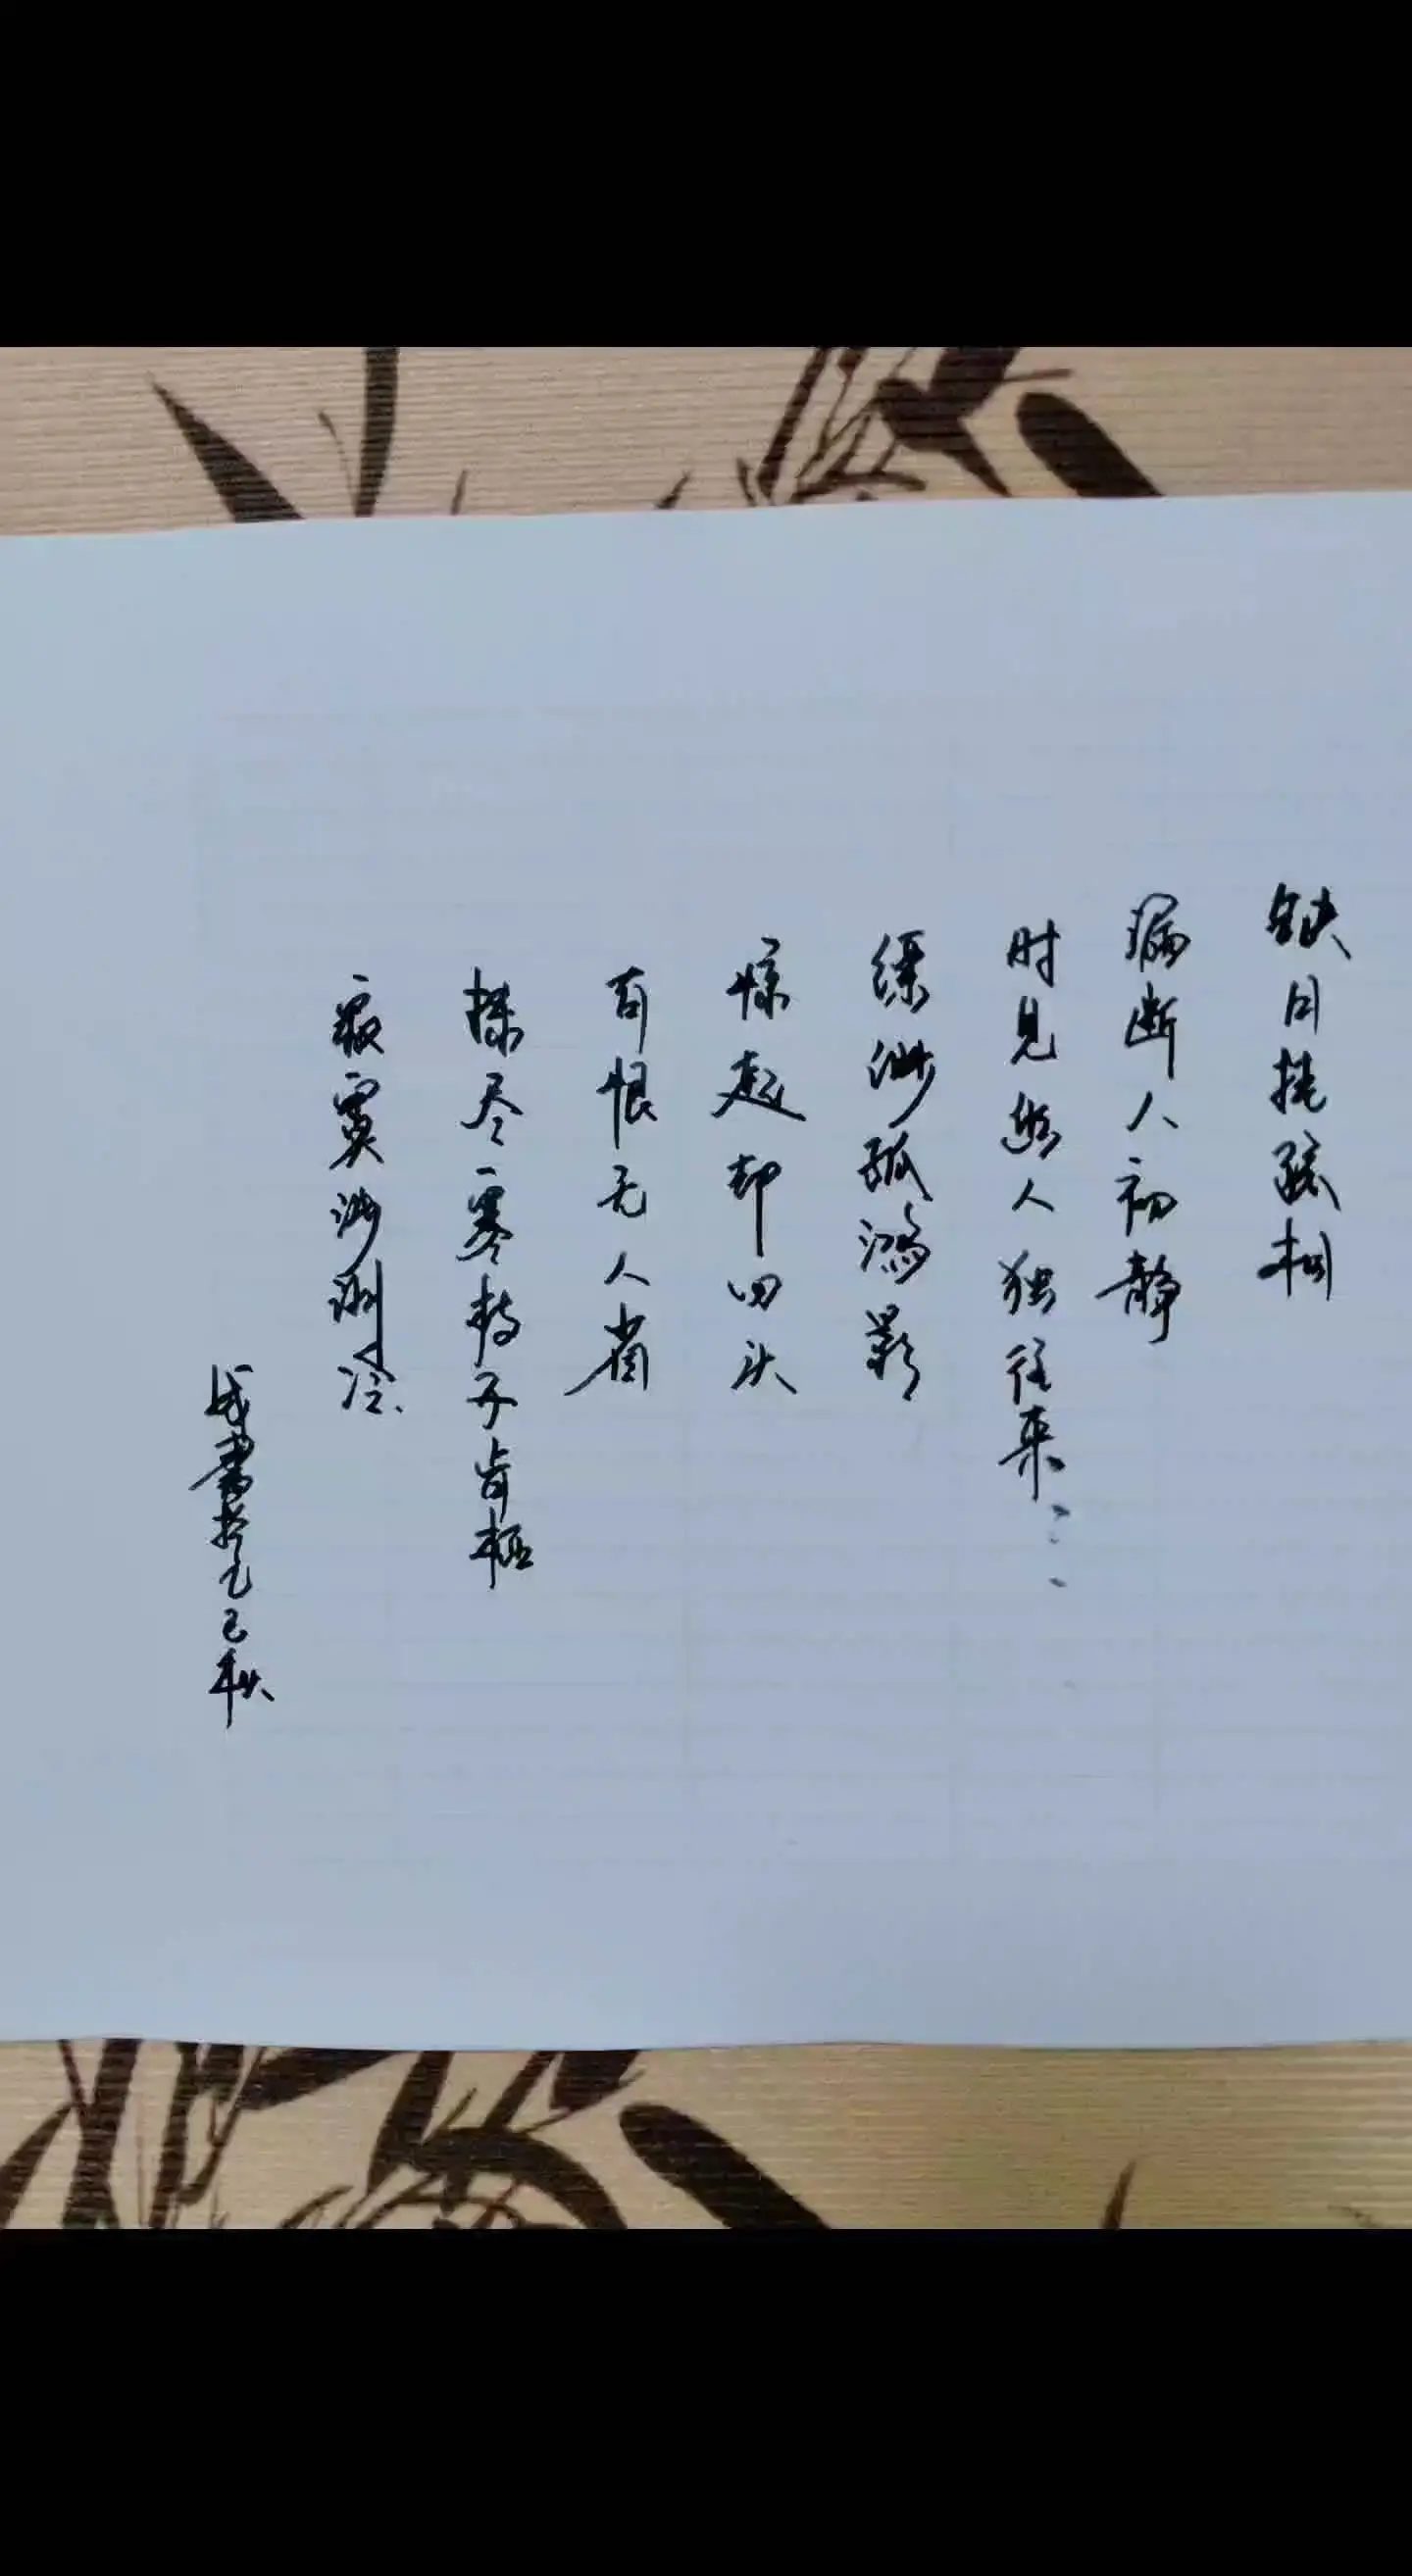 缺月挂疏桐
漏断人初静
时见幽人独往来……
缥渺孤鸿影
惊起却回头
有恨无人省
拣尽寒枝不肯栖
寂寞沙洲冷.
书于乙巳秋